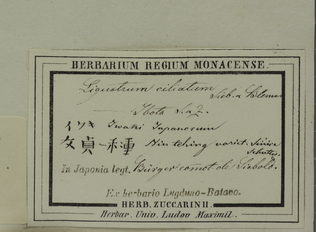 HERBARIUM REGIUM MONACENSE.
Ligustrum ciliatum Sieb. n. Blume
Ibota
Iwaki Japanorum
女貞一種 Niu tching variet. Sinice
In Japonia legt. Bürger comôt de Siebold.
Ex herbario Lugduno-Batavo.
HERB. ZUCCARINII.
Herbar. Univ. Ludov. Maximil.